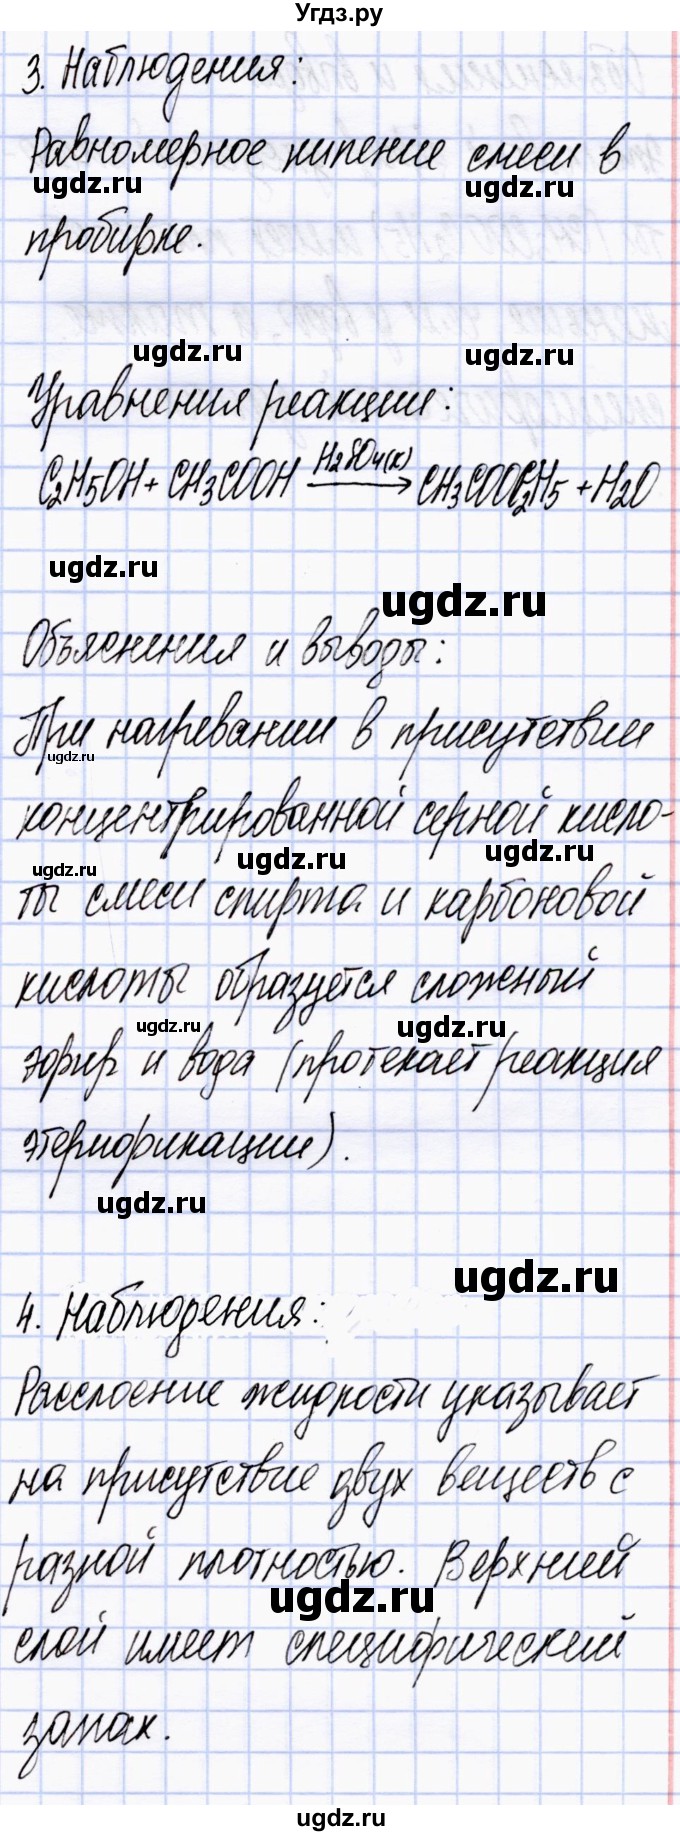 Угдз.ру
3. Наблюдения:
Равномерное кипение смеси в
ugdz.ru ugdz.ru
пробирке.
ugdz.ru ugdz.ru
Уравнения реакции:
C2H5OH + CH3COOH H2SO4(к) → CH3COOC2H5 + H2O
ugdz.ru ugdz.ru
Объяснения и выводы:
При нагревании в присутствии
ugdz.ru
концентрированной серной кисло-
ugdz.ru ugdz.ru ugdz.ru
ты смеси спирта и карбоновой
кислоты образуется сложный
ugdz.ru ugdz.ru
эфир и вода (протекает реакция
этерификации).
ugdz.ru
ugdz.ru
4. Наблюдения:
Расслоение жидкости указывает
на присутствие двух веществ с
разной плотностью. Верхний
ugdz.ru
слой имеет специфический
запах.
ugdz.ru